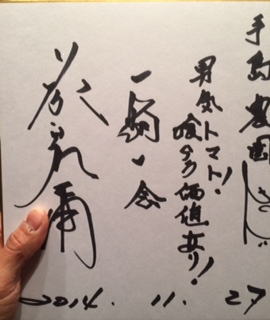 手島農園
男気トマト!
喰う価値有り!!
一期一会
2014. 11. 27